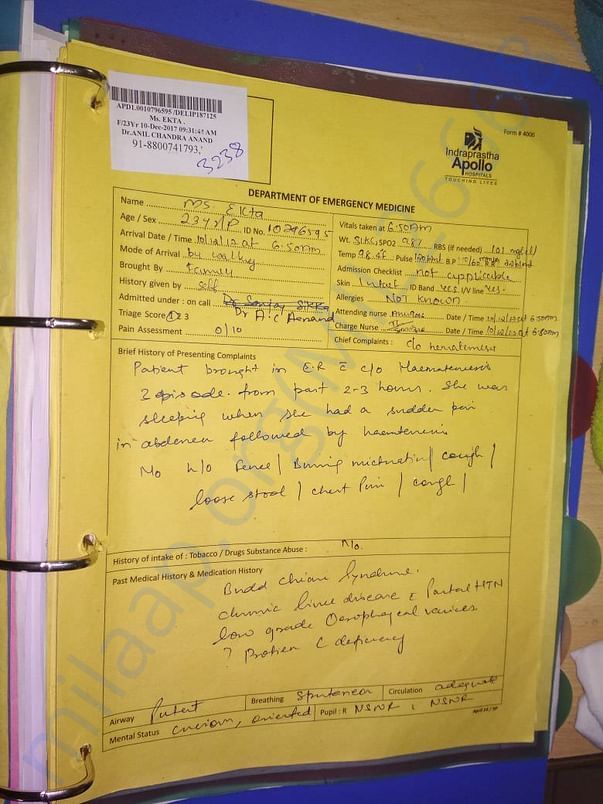 APD1.0010796595 /DELIP187125
Ms. EKTA .
F/23Yr 10-Dec-2017 09:31:41 AM
Dr.ANIL CHANDRA ANAND
91-8800741793,
3238
Form # 4006
Indraprastha
Apollo
HOSPITALS
TOUCHING LIVES
DEPARTMENT OF EMERGENCY MEDICINE
Name MS. EKta
Age / Sex 23yr/F ID No. 10796595
Arrival Date / Time 10/12/17 at 6:50am
Mode of Arrival by walking
Brought By Family
History given by self
Admitted under : on call Dr Sanjay Sikka
Dr A.C Aanand
Triage Score 1 2 3
Pain Assessment 0/10
Vitals taken at 6:50am
Wt. 51KG SPO2 98% RBS (if needed) 101 mg/dl
Temp 98.6F Pulse B.P
Admission Checklist not applicable
Skin Intact ID Band Yes IV line Yes
Allergies Not known
Attending nurse Date / Time 10/12/17 at 6:50am
Charge Nurse Date / Time
Chief Complaints : c/o hematemesis
Brief History of Presenting Complaints
Patient brought in E.R c̄ c/o Haematemesis
2 episode. from past 2-3 hours. She was
sleeping when she had a sudden pain
in abdomen followed by haematemesis
No h/o Fever / Burning micturation / cough /
loose stool / chest Pain / cough /
History of intake of : Tobacco / Drugs Substance Abuse : No.
Past Medical History & Medication History
Budd Chiari Syndrome.
chronic liver disease c̄ Portal HTN
low grade Oesophageal varices
? Protien C deficiency
Airway Patent Breathing Spontaneous Circulation adequate
Mental Status Conscious, oriented Pupil : R NSNR L NSNR
milaap.org